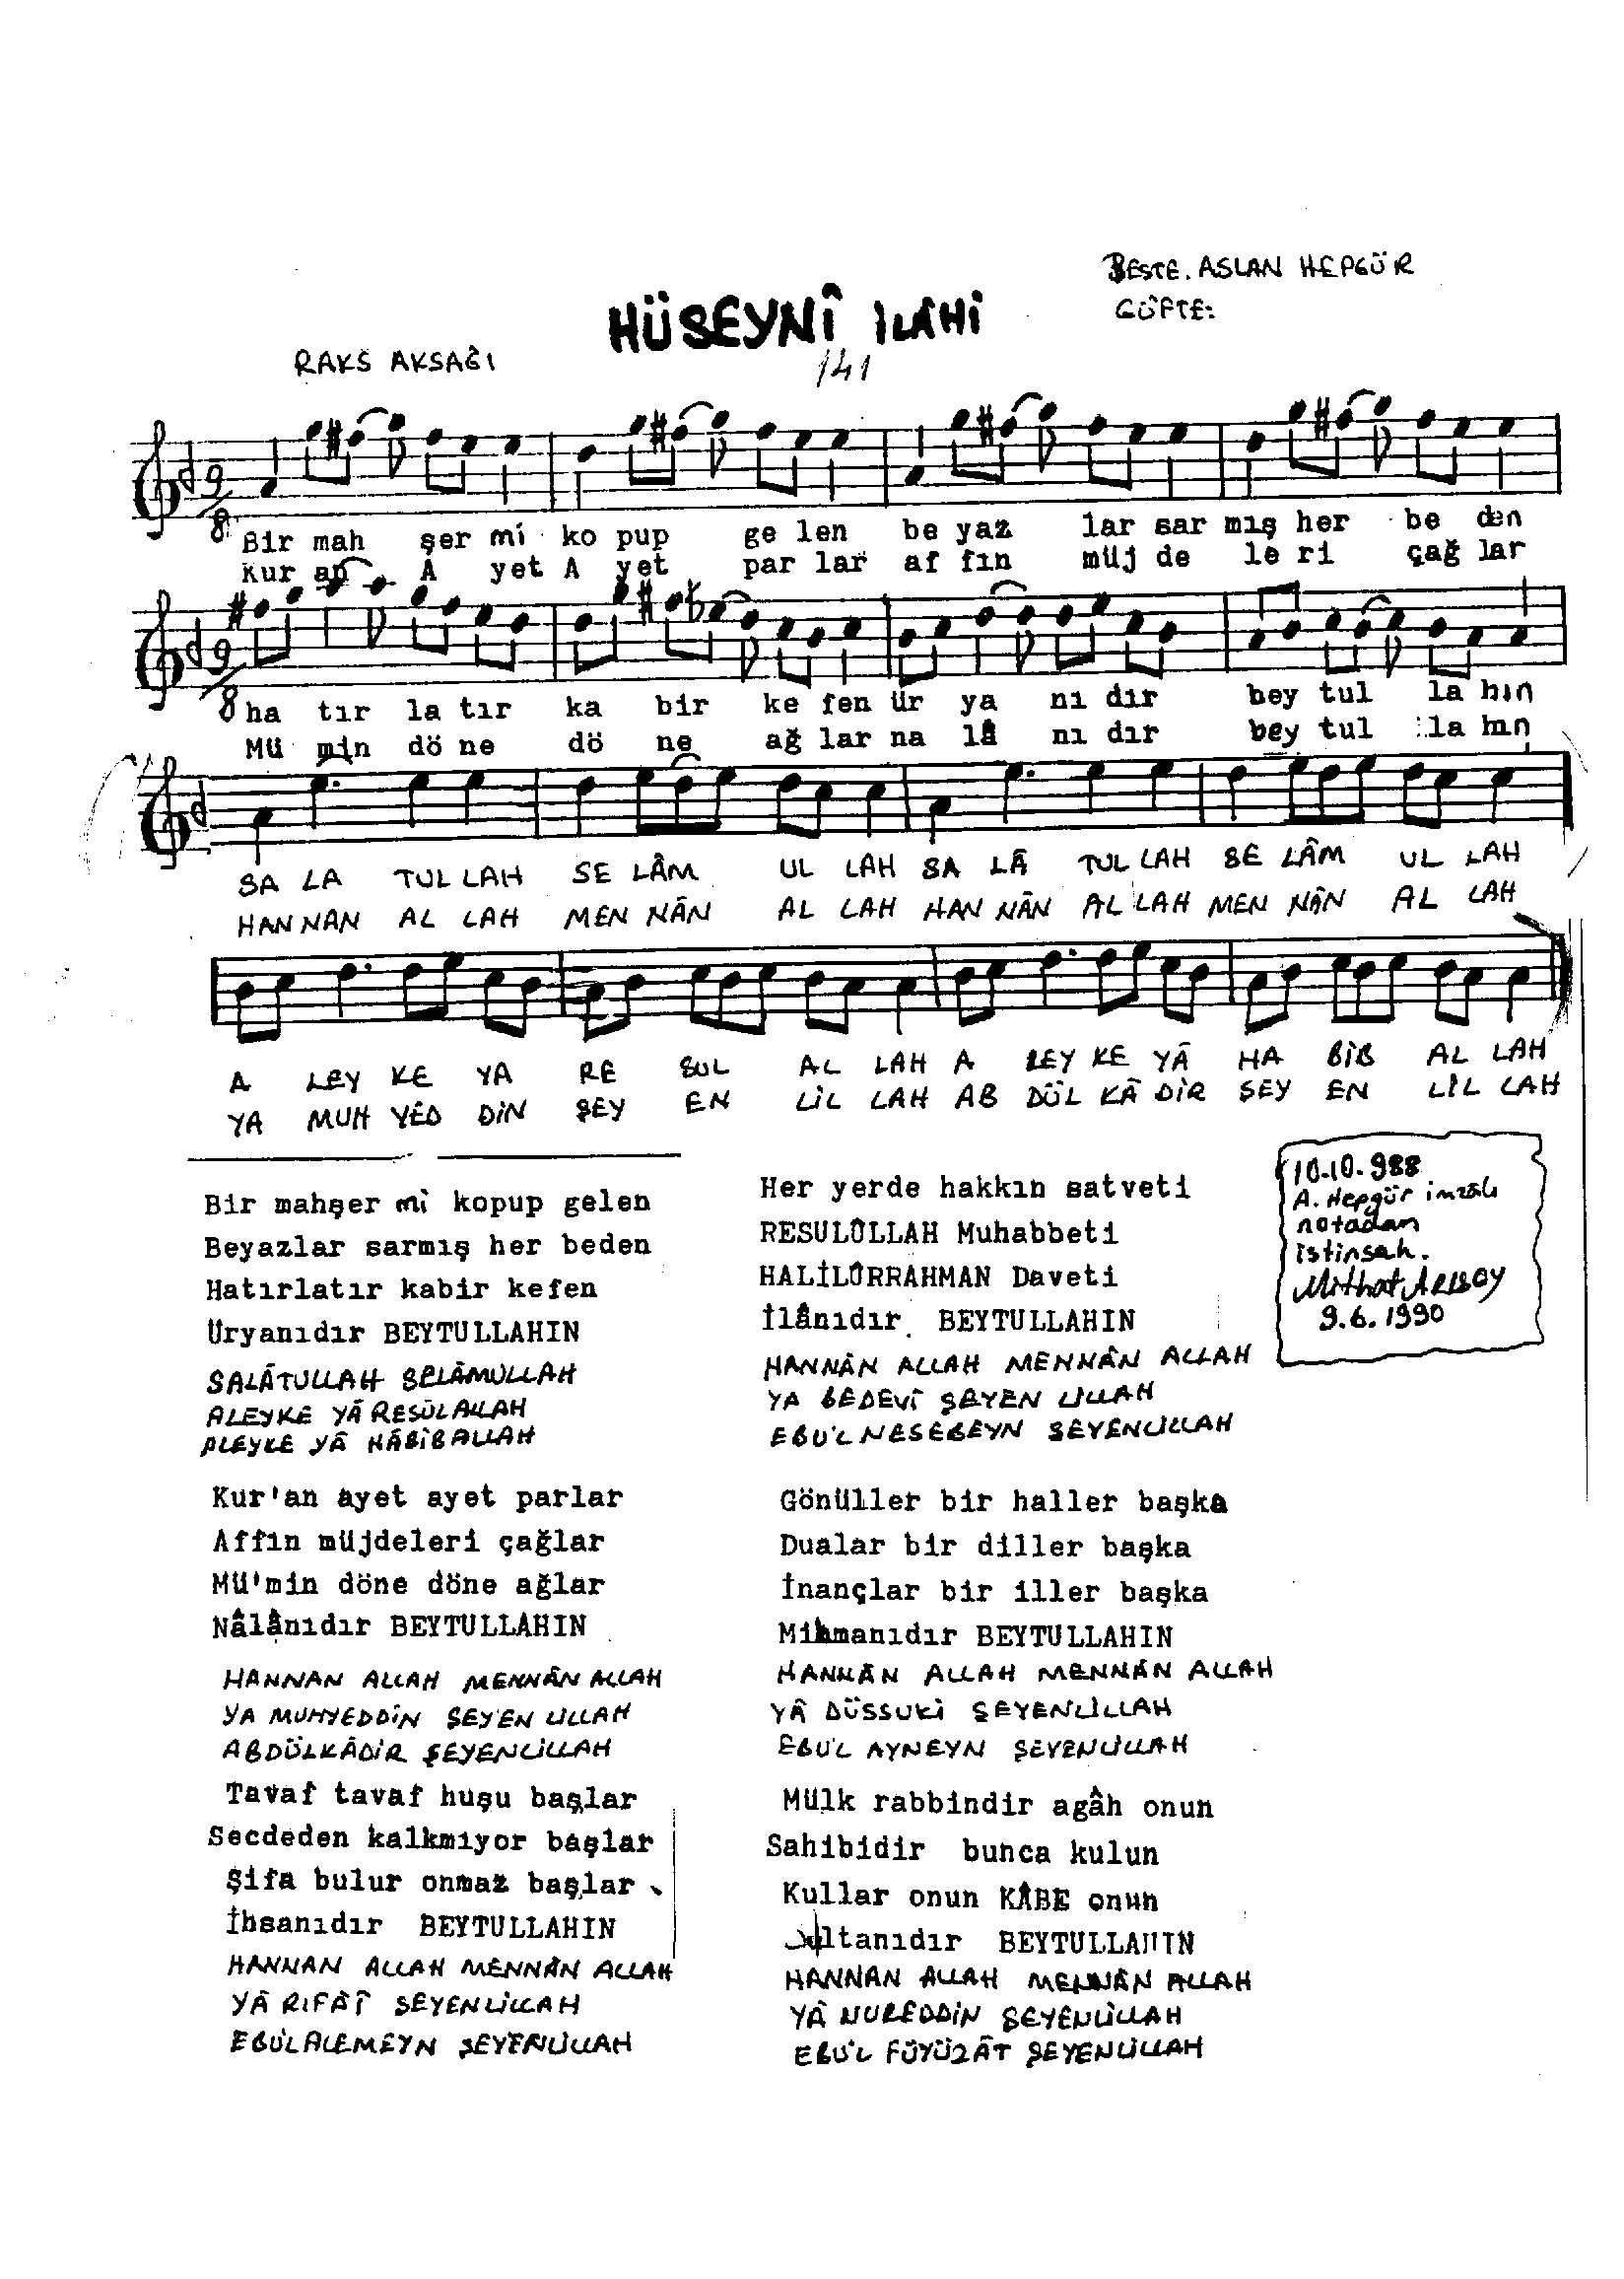 BESTE. ASLAN HEPGÜR
GÜFTE:
HÜSEYNÎ İLÂHİ
RAKS AKSAĞI
141
9/8
Bir mah şer mi ko pup ge len be yaz lar sar mış her be den
Kur an A yet A yet par lar af fın müj de le ri çağ lar
9/8
ha tır la tır ka bir ke fen ür ya nı dır bey tul la hın
Mü min dö ne dö ne ağ lar na lâ nı dır bey tul la hın
SA LA TUL LAH SE LÂM UL LAH SA LÂ TUL LAH SE LÂM UL LAH
HAN NAN AL LAH MEN NÂN AL LAH HAN NÂN AL LAH MEN NÂN AL LAH
A LEY KE YA RE SUL AL LAH A LEY KE YÂ HA BİB AL LAH
YA MUH YED DİN ŞEY EN LİL LAH AB DÜL KÂ DİR ŞEY EN LİL LAH
Bir mahşer mi kopup gelen
Beyazlar sarmış her beden
Hatırlatır kabir kefen
Üryanıdır BEYTULLAHIN
SALÂTULLAH SELÂMULLAH
ALEYKE YÂ RESÛLALLAH
ALEYKE YÂ HÂBİBALLAH
Kur'an ayet ayet parlar
Affın müjdeleri çağlar
Mü'min döne döne ağlar
Nâlânıdır BEYTULLAHIN
HANNAN ALLAH MENNÂN ALLAH
YA MUHYEDDİN ŞEYEN LİLLAH
ABDÜLKÂDİR ŞEYENLİLLAH
Tavaf tavaf huşu başlar
Secdeden kalkmıyor başlar
Şifa bulur onmaz başlar
İhsanıdır BEYTULLAHIN
HANNAN ALLAH MENNÂN ALLAH
YÂ RIFÂÎ ŞEYENLİLLAH
EBÜ'L ALEMEYN ŞEYENLİLLAH
Her yerde hakkın satveti
RESULÜLLAH Muhabbeti
HALİLÜRRAHMAN Daveti
İlânıdır BEYTULLAHIN
HANNÂN ALLAH MENNÂN ALLAH
YA BEDEVÎ ŞEYEN LİLLAH
EBU'L NESEBEYN ŞEYENLİLLAH
Gönüller bir haller başka
Dualar bir diller başka
İnançlar bir iller başka
Mihmanıdır BEYTULLAHIN
HANNÂN ALLAH MENNÂN ALLAH
YÂ DÜSSUKİ ŞEYENLİLLAH
EBU'L AYNEYN ŞEYENLİLLAH
Mülk rabbindir agâh onun
Sahibidir bunca kulun
Kullar onun KÂBE onun
Sultanıdır BEYTULLAHIN
HANNAN ALLAH MENNÂN ALLAH
YÂ NUREDDİN ŞEYENLİLLAH
EBU'L FÜYÜZÂT ŞEYENLİLLAH
10.10.988
A. Hepgür imzalı
notadan
istinsah.
Mithat ARISOY
9.6.1990